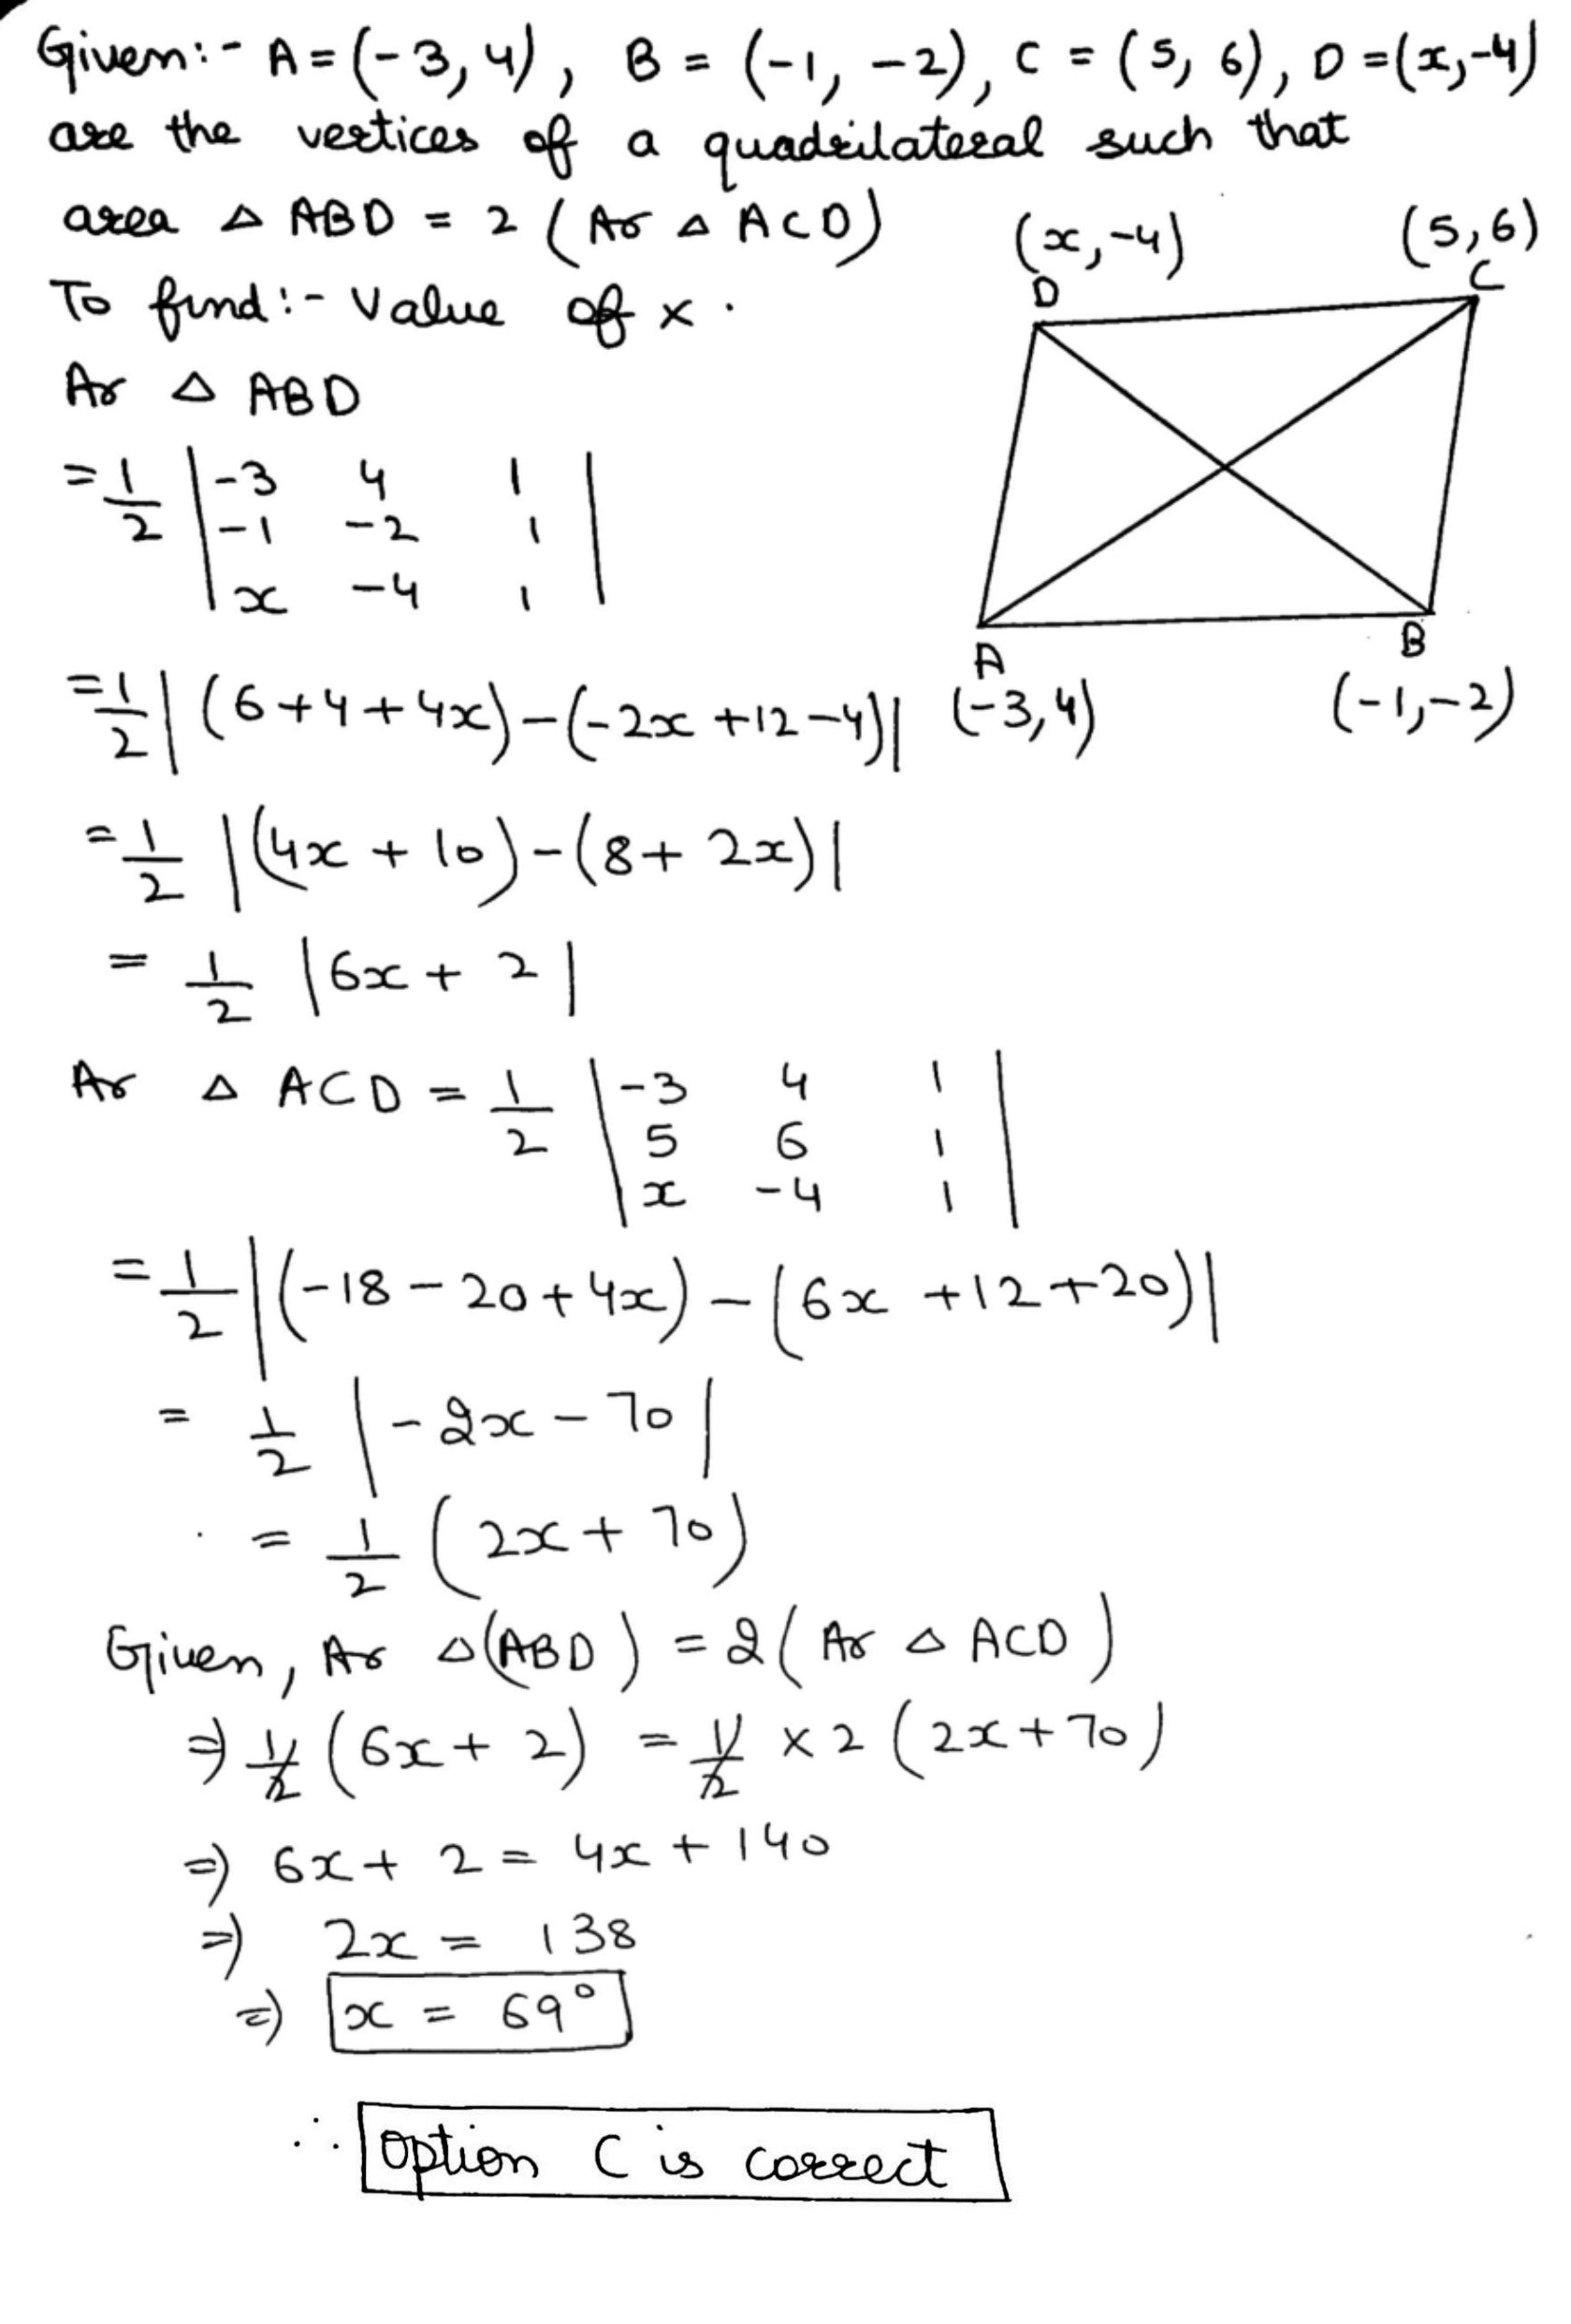 Given:- A = (-3, 4), B = (-1, -2), C = (5, 6), D = (x, -4)
are the vertices of a quadrilateral such that
area △ ABD = 2 (Ar △ ACD)
To find:- Value of x.
(x, -4)
(5, 6)
D
C
A
B
(-3, 4)
(-1, -2)
Ar △ ABD
= 1/2 | -3 4 1 |
-1 -2 1
x -4 1
= 1/2 | (6 + 4 + 4x) - (-2x + 12 - 4) |
= 1/2 | (4x + 10) - (8 + 2x) |
= 1/2 | 6x + 2 |
Ar △ ACD = 1/2 | -3 4 1 |
5 6 1
x -4 1
= 1/2 | (-18 - 20 + 4x) - (6x + 12 + 20) |
= 1/2 | -2x - 70 |
= 1/2 (2x + 70)
Given, Ar △(ABD) = 2 (Ar △ ACD)
⇒ 1/2 (6x + 2) = 1/2 × 2 (2x + 70)
⇒ 6x + 2 = 4x + 140
⇒ 2x = 138
⇒ x = 69°
∴ Option C is correct